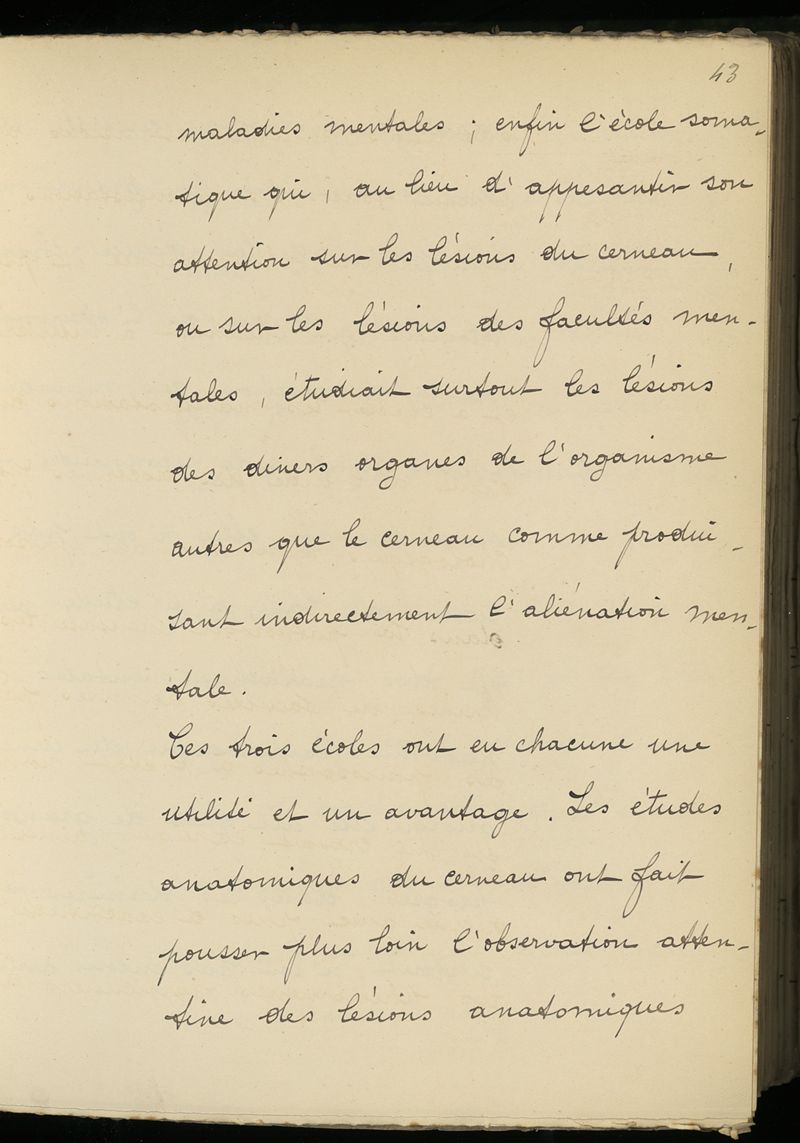 43
maladies mentales ; enfin l'école soma-
tique qui, au lieu d'appesantir son
attention sur les lésions du cerveau,
ou sur les lésions des facultés men-
tales, étudiait surtout les lésions
des divers organes de l'organisme
autres que le cerveau comme produi-
sant indirectement l'aliénation men-
tale.
Ces trois écoles ont eu chacune une
utilité et un avantage. Les études
anatomiques du cerveau ont fait
pousser plus loin l'observation atten-
tive des lésions anatomiques